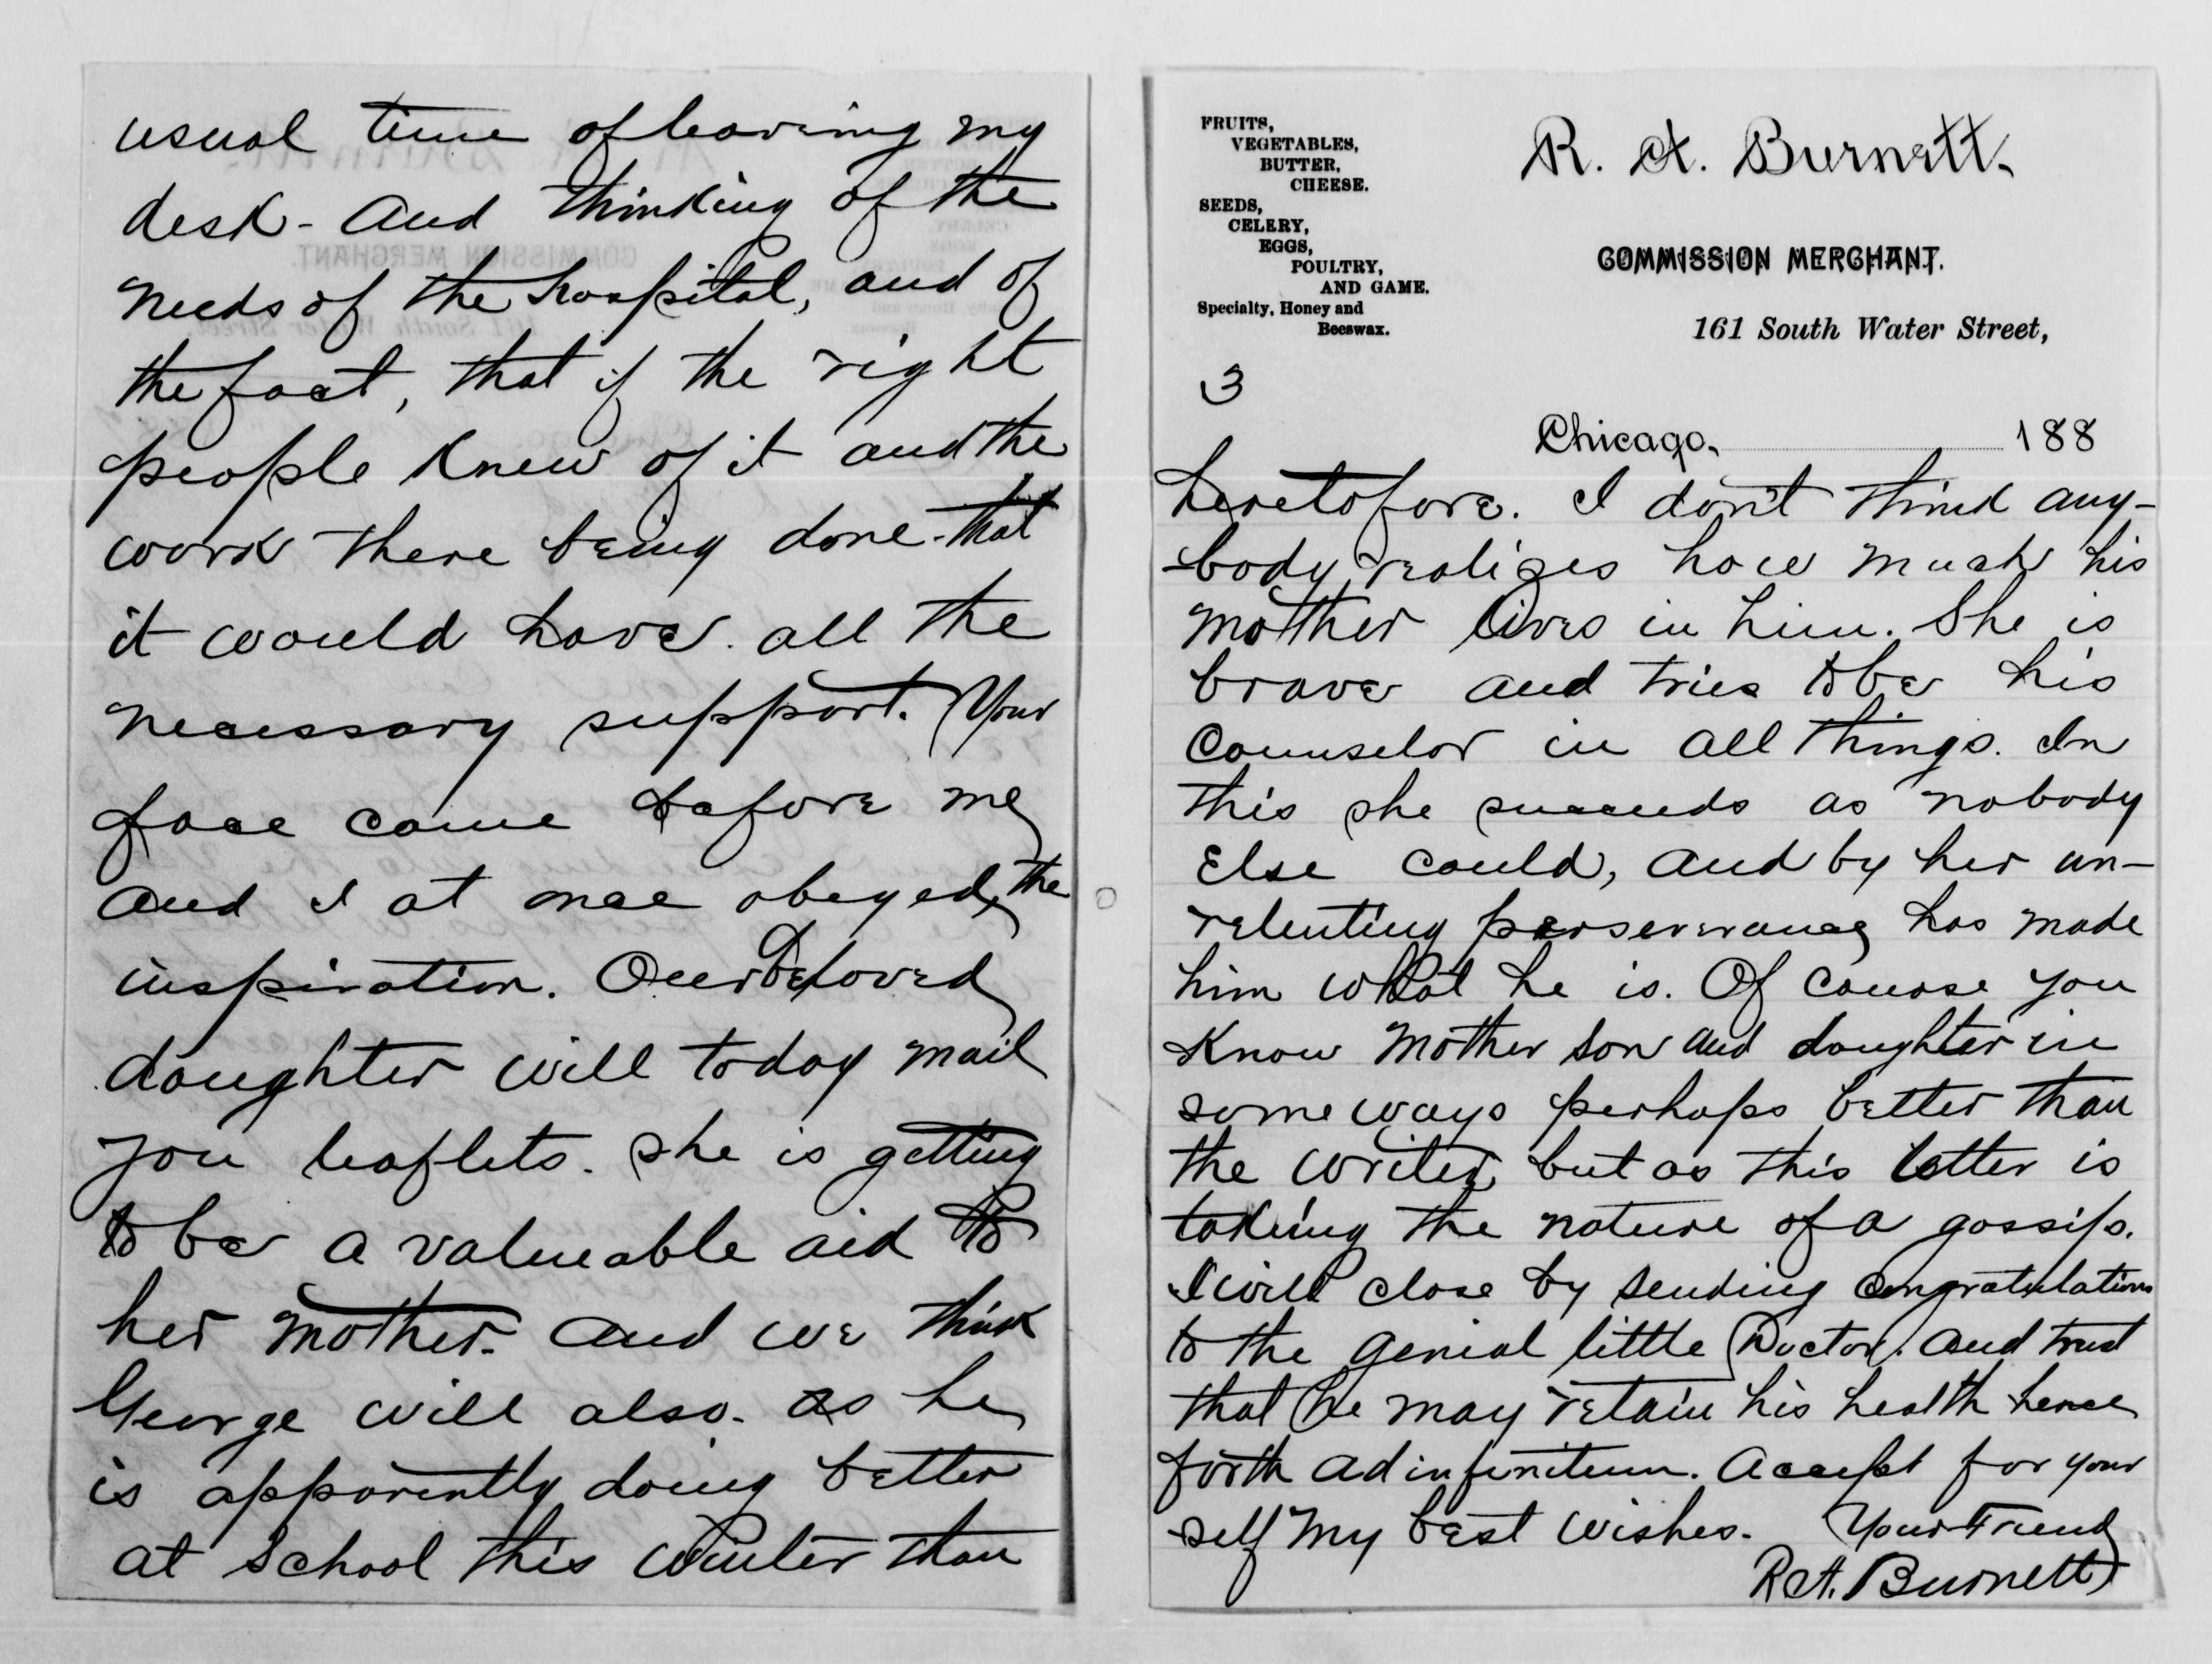 usual time of leaving my
desk - And thinking of the
needs of the hospital, and of
the fact, that if the right
people knew of it and the
work there being done - that
it would have all the
necessary support. Your
face came before me
and I at once obeyed, the
inspiration. Our beloved
daughter will today mail
you leaflets. She is getting
to be a valueable aid to
her mother. And we think
George will also. as he
is apparently doing better
at School this Winter than
FRUITS,
VEGETABLES,
BUTTER,
CHEESE.
SEEDS,
CELERY,
EGGS,
POULTRY,
AND GAME.
Specialty, Honey and
Beeswax.
R. A. Burnett.
COMMISSION MERCHANT.
161 South Water Street,
3
Chicago, 188
heretofore. I don't think any-
-body realizes how much his
mother lives in him. She is
brave and tries to be his
Counselor in all things. In
this she succeeds as nobody
Else could, and by her un-
relenting perserverance has made
him what he is. Of course you
Know Mother Son and daughter in
some ways perhaps better than
the writer, but as this letter is
taking the nature of a gossip.
I will close by sending Congratulations
to the genial little Doctor. And trust
that he may retain his health hence
forth ad infinitum. Accept for your
self my best wishes. Your Friend
R. A. Burnett